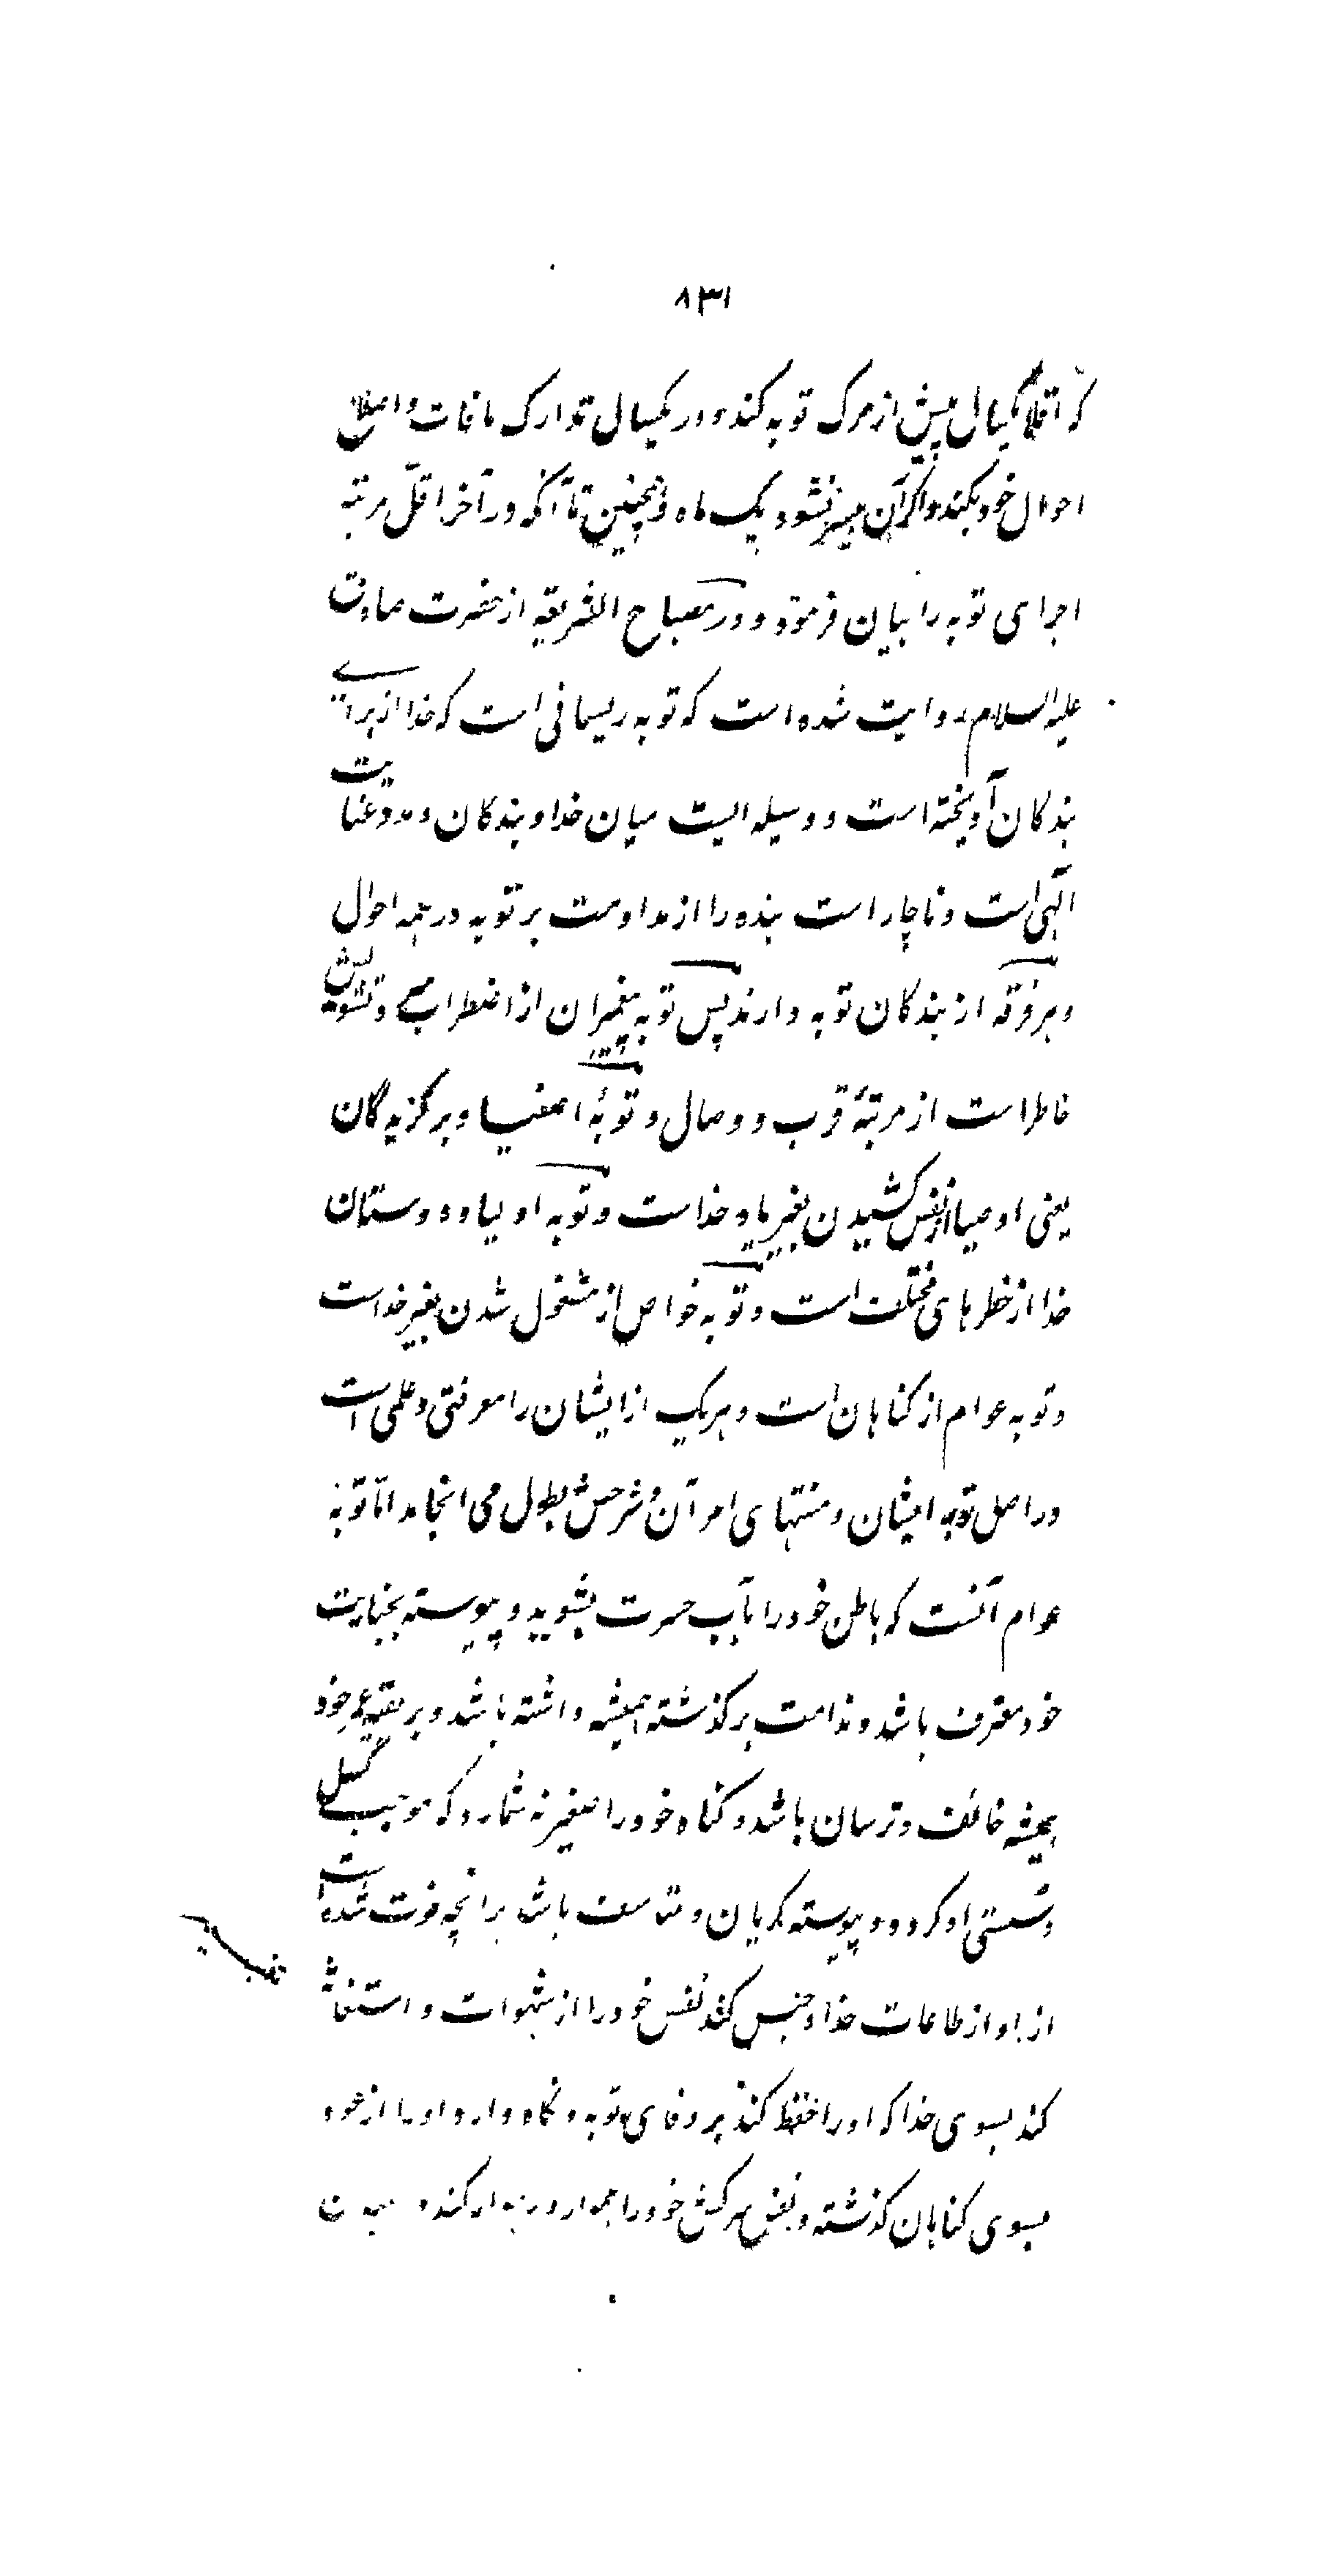 ۸۳۱
که اقلا یکسال پیش از مرک توبه کند و در یکسال تدارک مافات و اصلاح
احوال خود بکند و اکر آن میسر نشود یک ماه و همچنین تا آنکه در آخر اقلّ مرتبه
اجرای توبه را بیان فرموده و در مصباح الشریعه از حضرت صادق
علیه السلام روایت شده است که توبه ریسمانی است که خدا از برای
بندکان آویخته است و وسیله ایست میان خدا و بندکان و مدد عنایت
الٓهی است و ناچار است بنده را از مداومت بر توبه در همه احوال
و هر فرقه از بندکان توبه دارند پس توبه پیغمبران از اضطراب و تشویش
خاطر است از مرتبهٔ قرب و وصال و توبهٔ اصفیا و برکزیدگان
یعنی اوصیا از نفس کشیدن بغیر یاد خداست و توبه اولیا و دوستان
خدا از خطرهای مختلف است و توبه خواص از مشغول شدن بغیر خداست
و توبه عوام از کناهان است و هر یک از ایشان را معرفتی و علمی است
در اصل توبه ایشان و منتهای امر آن و شرحش بطول می انجامد امّا توبهٔ
عوام آنست که باطن خود را بآب حسرت بشوید و پیوسته بجنایت
خود معترف باشد و ندامت بر کذشته همیشه داشته باشد و بر بقیه عمر خود
همیشه خائف و ترسان باشد و کناه خود را صغیر نه شمارد که موجب کسل
و سستی او کردد و پیوسته کریان و متاسف باشد برانچه فوت شده است
از او از طاعات خدا و حبس کند نفس خود را از شهوات و استغاثه
کند بسوی خدا که او را حفظ کند بر وفای توبه و نکاه دارد او را از عود
بسوی کناهان کذشته و نفس سرکش خود را هموار و رهوار کند